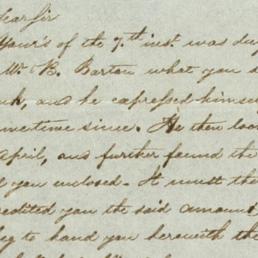 Dear Sir
Your's of the 7.th inst. was du
Mr. B. Barton what you s
and he expressed himse
sometime since. He then loo
April, and further found the
l you enclosed. It must the
edited you the said amoun
beg to hand you herewith the